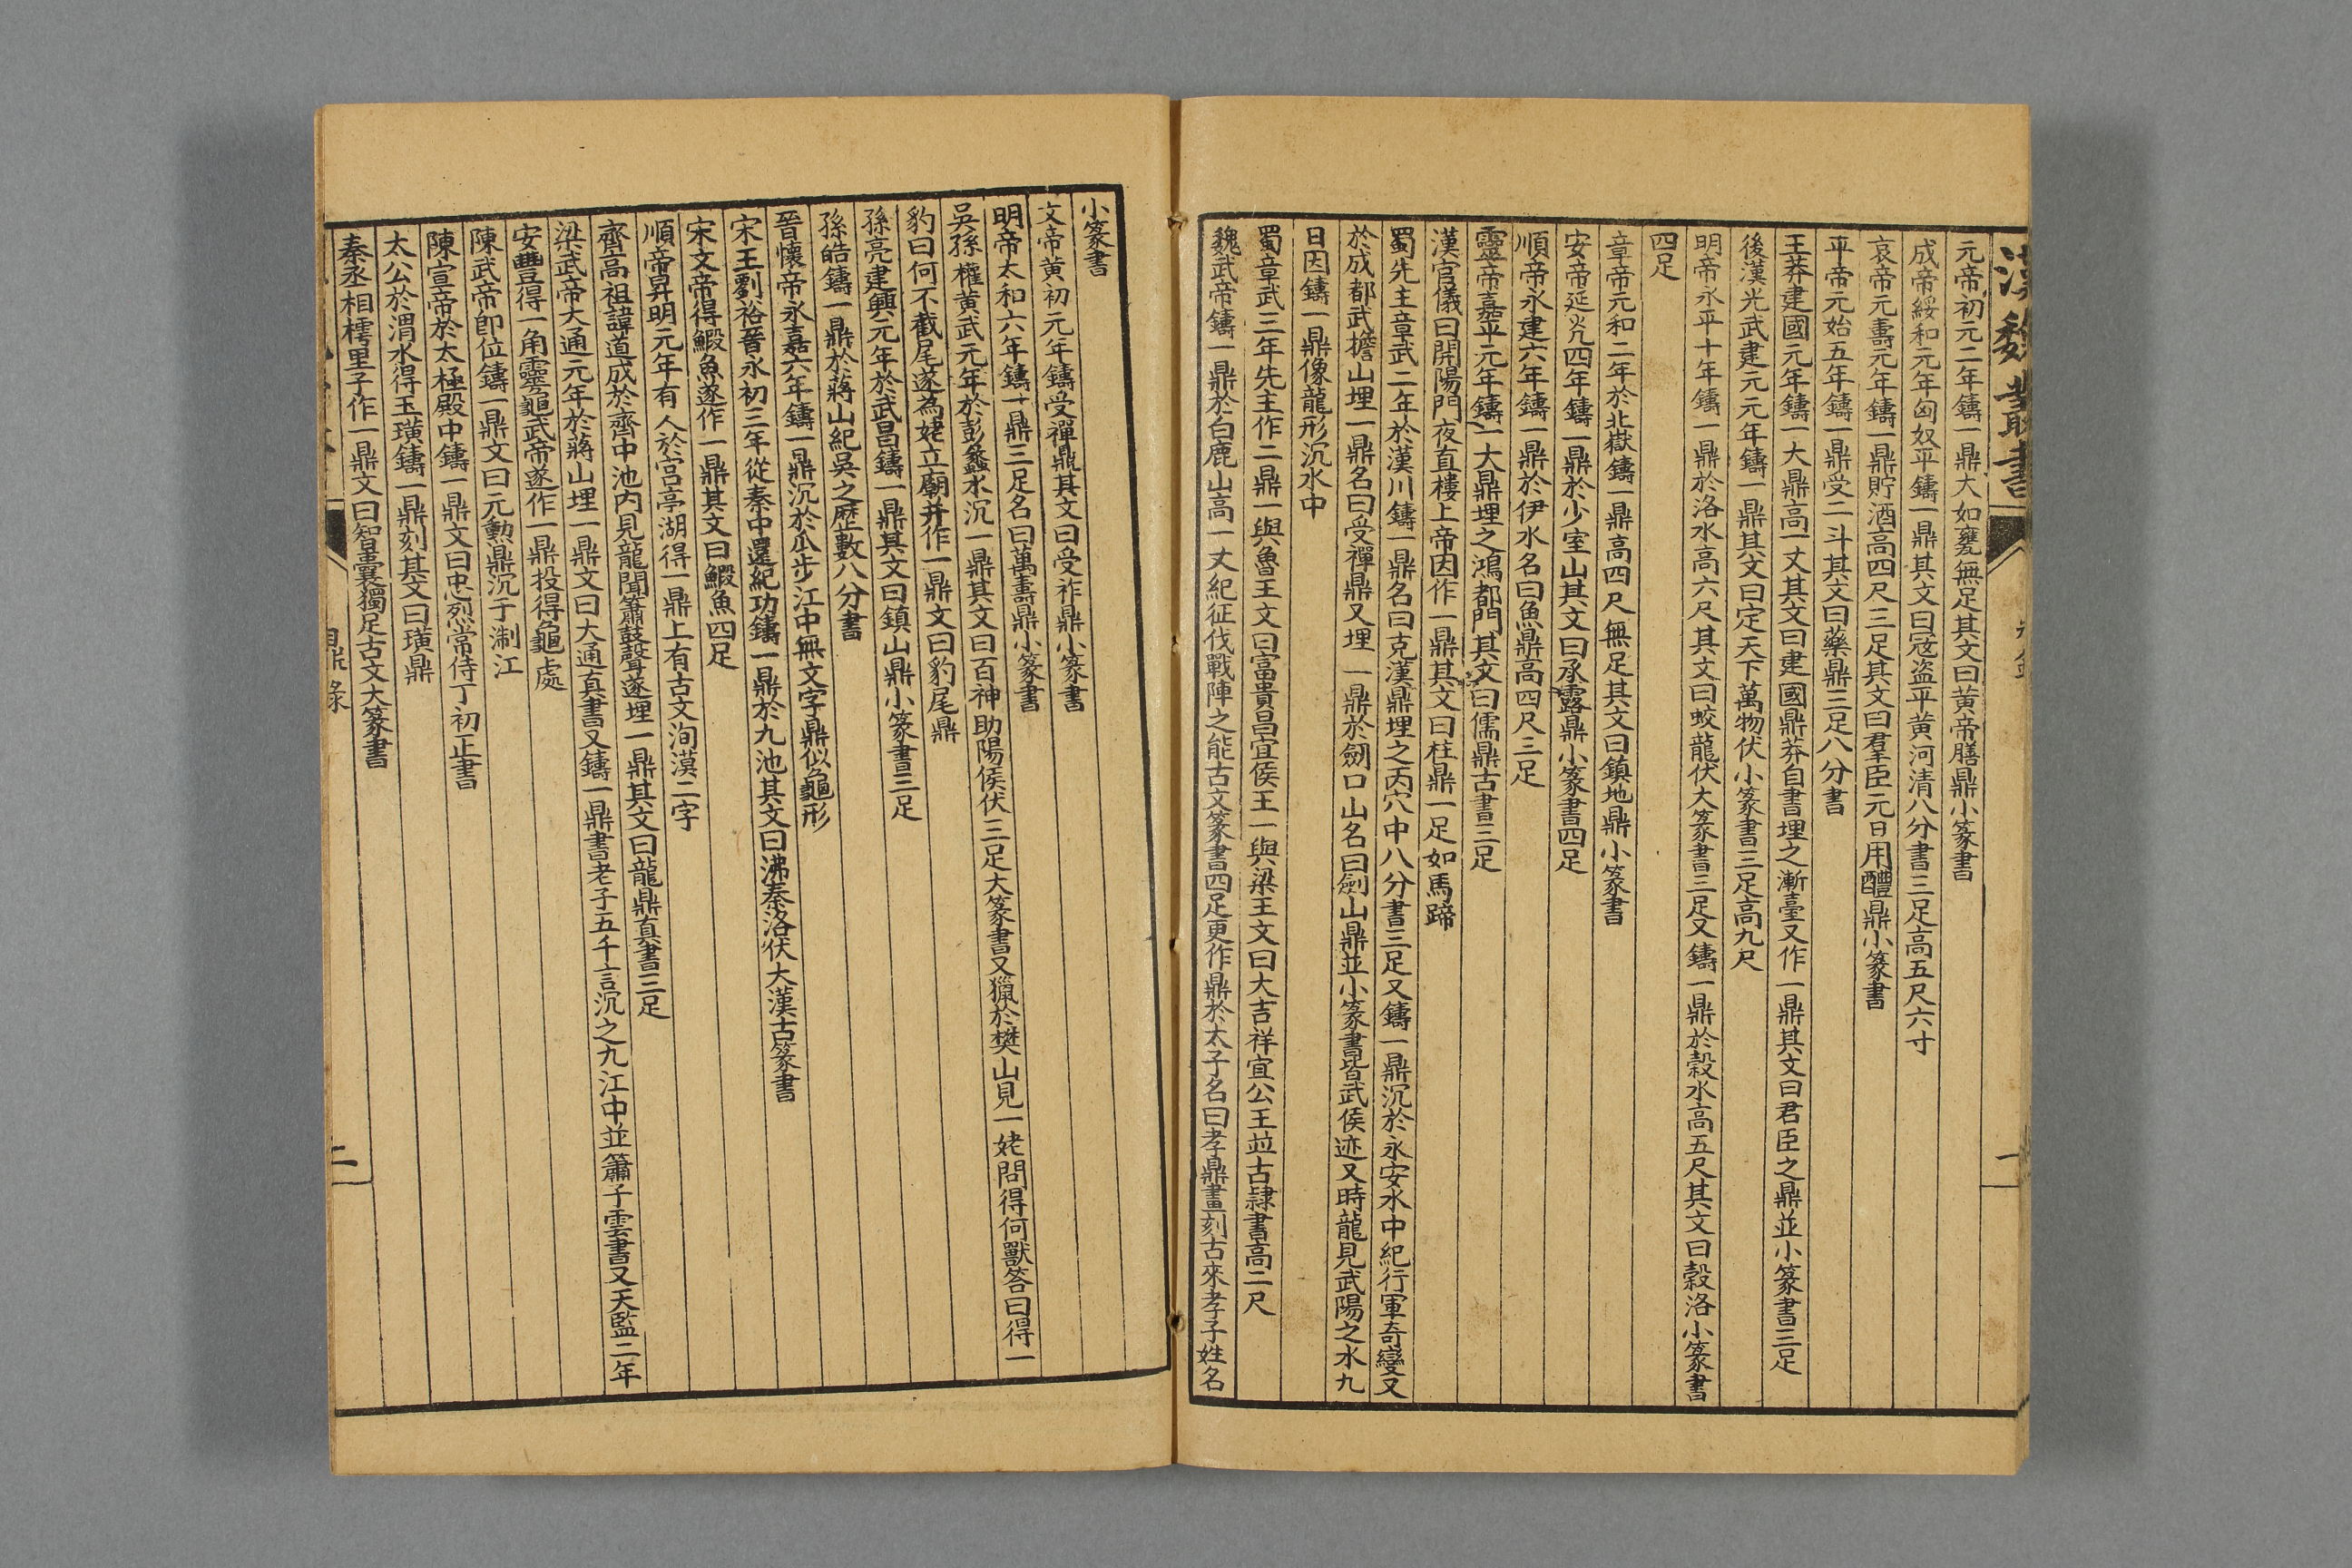 漢魏叢書
一
元帝初元二年鑄一鼎大如甕無足其文曰黃帝膳鼎小篆書
成帝綏和元年匈奴平鑄一鼎其文曰寇盜平黃河清八分書三足高五尺六寸
哀帝元壽元年鑄一鼎貯酒高四尺三足其文曰羣臣元日用醴鼎小篆書
平帝元始五年鑄一鼎受二斗其文曰藥鼎三足八分書
王莽建國元年鑄一大鼎高一丈其文曰建國鼎莽自書埋之漸臺又作一鼎其文曰君臣之鼎並小篆書三足
後漢光武建元元年鑄一鼎其文曰定天下萬物伏小篆書三足高九尺
明帝永平十年鑄一鼎於洛水高六尺其文曰蛟龍伏大篆書三足又鑄一鼎於穀水高五尺其文曰穀洛小篆書
四足
章帝元和二年於北嶽鑄一鼎高四尺無足其文曰鎮地鼎小篆書
安帝延光四年鑄一鼎於少室山其文曰承露鼎小篆書四足
順帝永建六年鑄一鼎於伊水名曰魚鼎高四尺三足
靈帝嘉平元年鑄一大鼎埋之鴻都門其文曰儒鼎古書三足
漢官儀曰開陽門夜直樓上帝因作一鼎其文曰柱鼎一足如馬蹄
蜀先主章武二年於漢川鑄一鼎名曰克漢鼎埋之丙穴中八分書三足又鑄一鼎沉於永安水中紀行軍奇變又
於成都武擔山埋一鼎名曰受禪鼎又埋一鼎於劒口山名曰劍山鼎並小篆書皆武侯迹又時龍見武陽之水九
日因鑄一鼎像龍形沉水中
蜀章武三年先主作二鼎一與魯王文曰富貴昌宜侯王一與梁王文曰大吉祥宜公王並古隸書高二尺
魏武帝鑄一鼎於白鹿山高一丈紀征伐戰陣之能古文篆書四足更作鼎於太子名曰孝鼎畫刻古來孝子姓名
小篆書
文帝黃初元年鑄受禪鼎其文曰受祚鼎小篆書
明帝太和六年鑄一鼎三足名曰萬壽鼎小篆書
吳孫權黃武元年於彭蠡水沉一鼎其文曰百神助陽侯伏三足大篆書又獵於樊山見一姥問得何獸答曰得一
豹曰何不截尾遂為姥立廟并作一鼎文曰豹尾鼎
孫亮建興元年於武昌鑄一鼎其文曰鎮山鼎小篆書三足
孫皓鑄一鼎於蔣山紀吳之歷數八分書
晉懷帝永嘉六年鑄一鼎沉於瓜步江中無文字鼎似龜形
宋王劉裕晉永初三年從秦中還紀功鑄一鼎於九池其文曰沸秦洛伏大漢古篆書
宋文帝得鰕魚遂作一鼎其文曰鰕魚四足
順帝昇明元年有人於宮亭湖得一鼎上有古文洵漠二字
齊高祖諱道成於齊中池內見龍聞簫鼓聲遂埋一鼎其文曰龍鼎真書三足
梁武帝大通元年於蔣山埋一鼎文曰大通真書又鑄一鼎書老子五千言沉之九江中並簫子雲書又天監二年
安豐得一角靈龜武帝遂作一鼎投得龜處
陳武帝卽位鑄一鼎文曰元勲鼎沉于淛江
陳宣帝於太極殿中鑄一鼎文曰忠烈常侍丁初正書
太公於渭水得玉璜鑄一鼎刻其文曰璜鼎
秦丞相樗里子作一鼎文曰智囊獨足古文大篆書
鼎錄
二